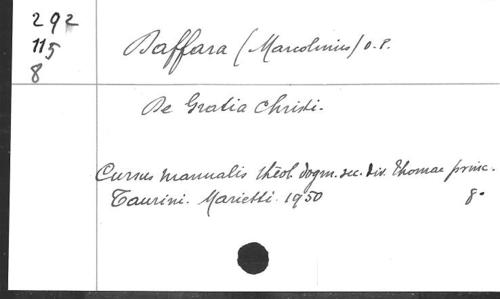 292
115
8
Daffara (Marcolinus) O.P.
De Gratia Christi.
Cursus manualis théol. dogm. sec. div. Thomae princ.
Taurini. Marietti. 1950 8°